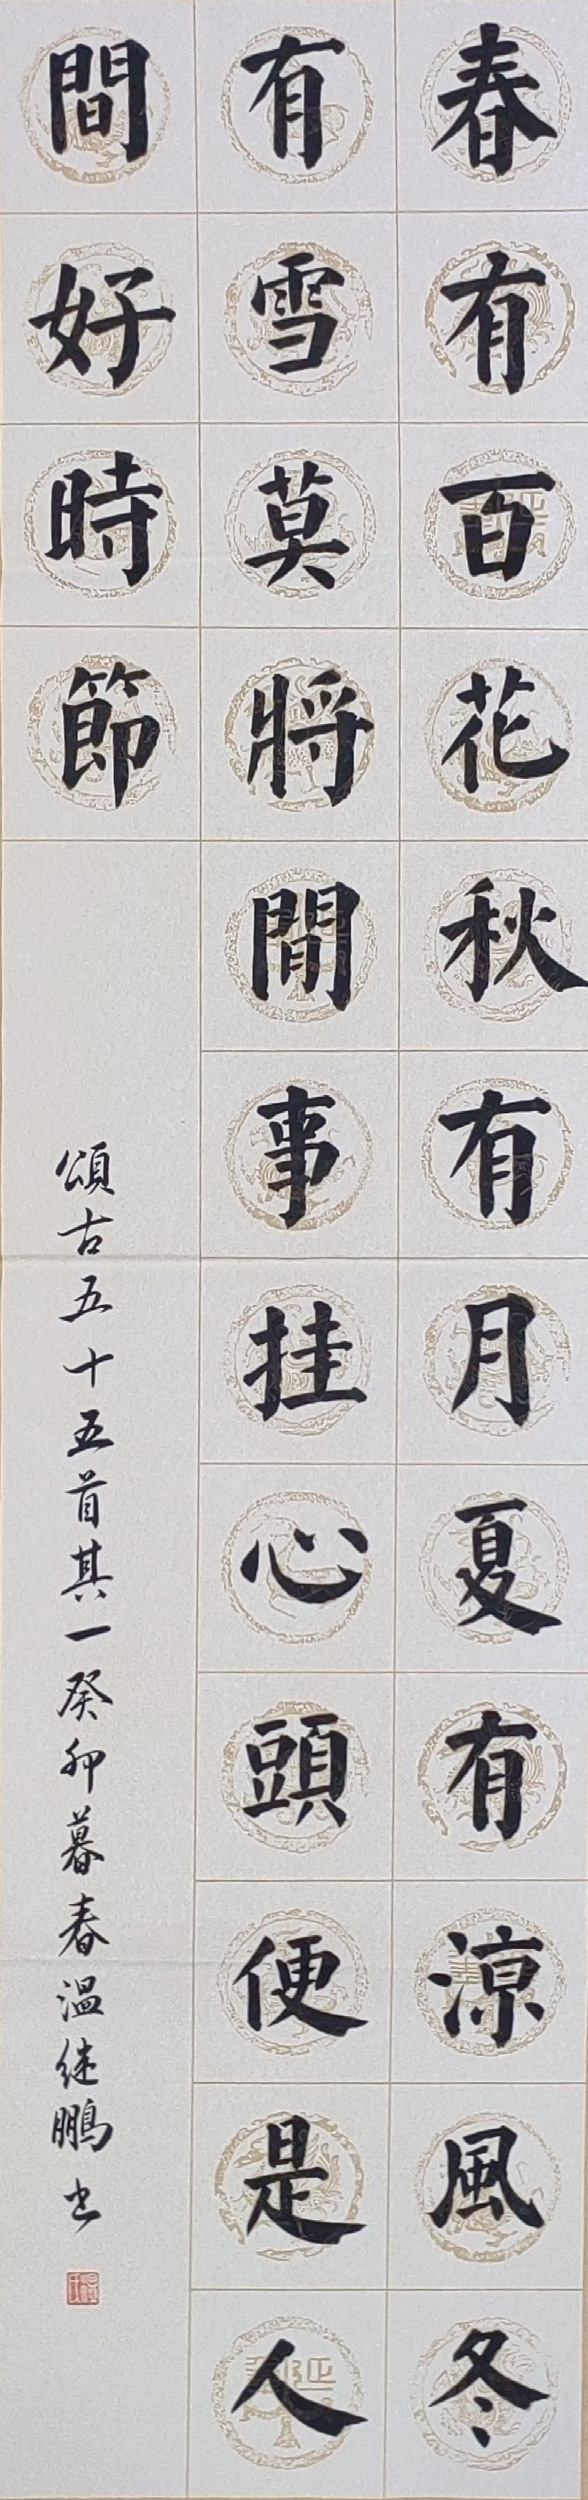 春有百花秋有月夏有涼風冬
有雪莫將閒事挂心頭便是人
間好時節
頌古五十五首其一癸卯暮春温继鵬书